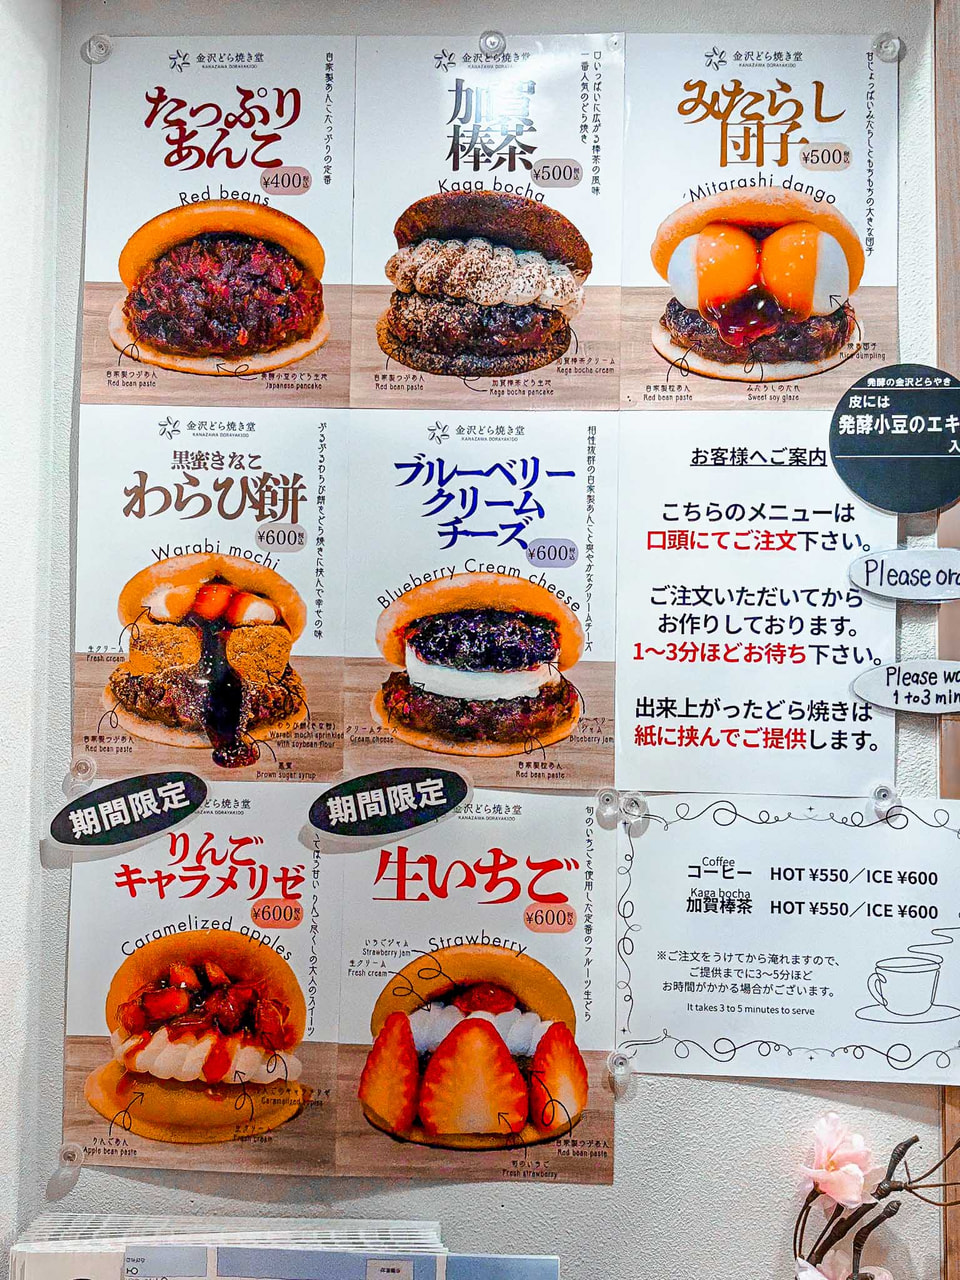 金沢どら焼き堂
KANAZAWA DORAYAKIDO
たっぷり
あんこ
¥400税込
Red beans
自家製あんこたっぷりの定番
自家製つぶあん
Red bean paste
発酵小豆のどら生地
Japanese pancake
金沢どら焼き堂
KANAZAWA DORAYAKIDO
加賀
棒茶
¥500税込
Kaga bocha
口いっぱいに広がる棒茶の風味
一番人気のどら焼き
自家製つぶあん
Red bean paste
加賀棒茶どら生地
Kaga bocha pancake
加賀棒茶クリーム
Kaga bocha cream
金沢どら焼き堂
KANAZAWA DORAYAKIDO
みたらし
団子
¥500税込
Mitarashi dango
甘じょっぱいみたらしともちもちの大きな団子
自家製粒あん
Red bean paste
みたらしのたれ
Sweet soy glaze
焼き団子
Rice dumpling
金沢どら焼き堂
KANAZAWA DORAYAKIDO
黒蜜きなこ
わらび餅
¥600税込
Warabi mochi
ぷるぷるわらび餅をどら焼きに挟んで幸せの味
生クリーム
Fresh cream
自家製つぶあん
Red bean paste
わらび餅(きな粉)
Warabi mochi sprinkled
with soybean flour
黒蜜
Brown sugar syrup
金沢どら焼き堂
KANAZAWA DORAYAKIDO
ブルーベリー
クリーム
チーズ
¥600税込
Blueberry Cream cheese
相性抜群の自家製あんこと爽やかなクリームチーズ
クリームチーズ
Cream cheese
自家製粒あん
Red bean paste
ブルーベリー
ジャム
Blueberry jam
発酵の金沢どらやき
皮には
発酵小豆のエキ
入
お客様へご案内
こちらのメニューは
口頭にてご注文下さい。
Please ord
ご注文いただいてから
お作りしております。
1〜3分ほどお待ち下さい。
Please wa
1 to 3 min
出来上がったどら焼きは
紙に挟んでご提供します。
期間限定
どら焼き堂
KANAZAWA DORAYAKIDO
りんご
キャラメリゼ
¥600税込
Caramelized apples
てほろ甘い りんご尽くしの大人のスイーツ
りんごあん
Apple bean paste
生クリーム
Fresh cream
りんごのキャラメリゼ
Caramelized apples
期間限定
沢どら焼き堂
KANAZAWA DORAYAKIDO
生いちご
¥600税込
Strawberry
旬のいちごを使用した定番のフルーツ生どら
いちごジャム
Strawberry jam
生クリーム
Fresh cream
自家製つぶあん
Red bean paste
旬のいちご
Fresh strawberry
Coffee
コーヒー HOT ¥550／ICE ¥600
Kaga bocha
加賀棒茶 HOT ¥550／ICE ¥600
※ご注文をうけてから淹れますので、
ご提供までに3〜5分ほど
お時間がかかる場合がございます。
It takes 3 to 5 minutes to serve